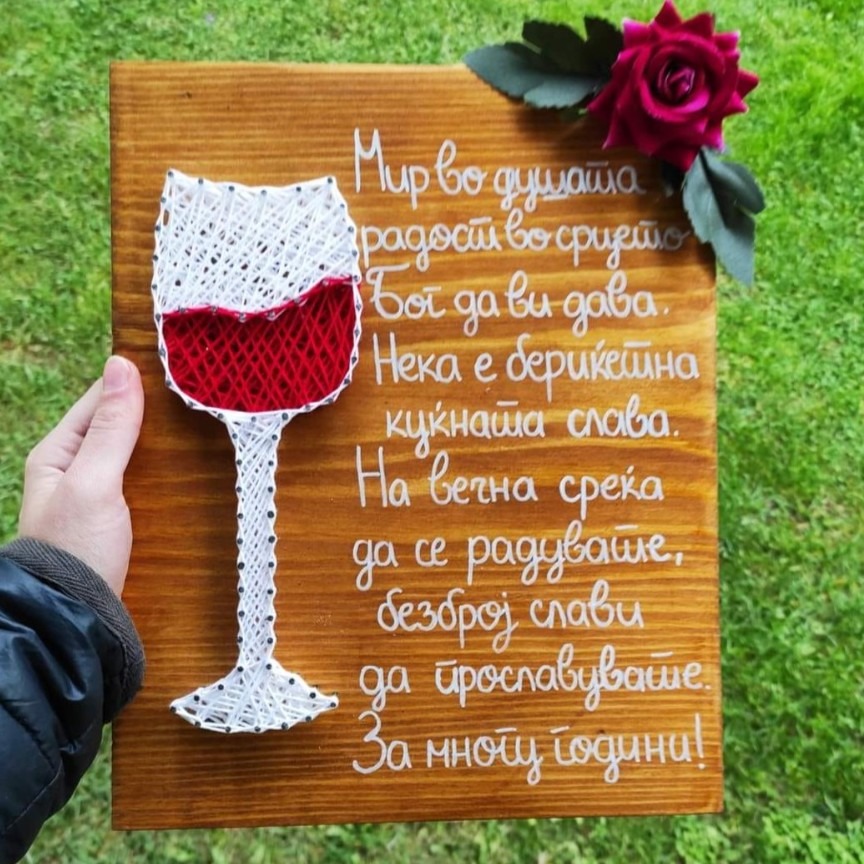 Мир во душата
радост во срцето
Бог да ви дава.
Нека е бериќетна
куќната слава.
На вечна среќа
да се радувате,
безброј слави
да прославувате.
За многу години!